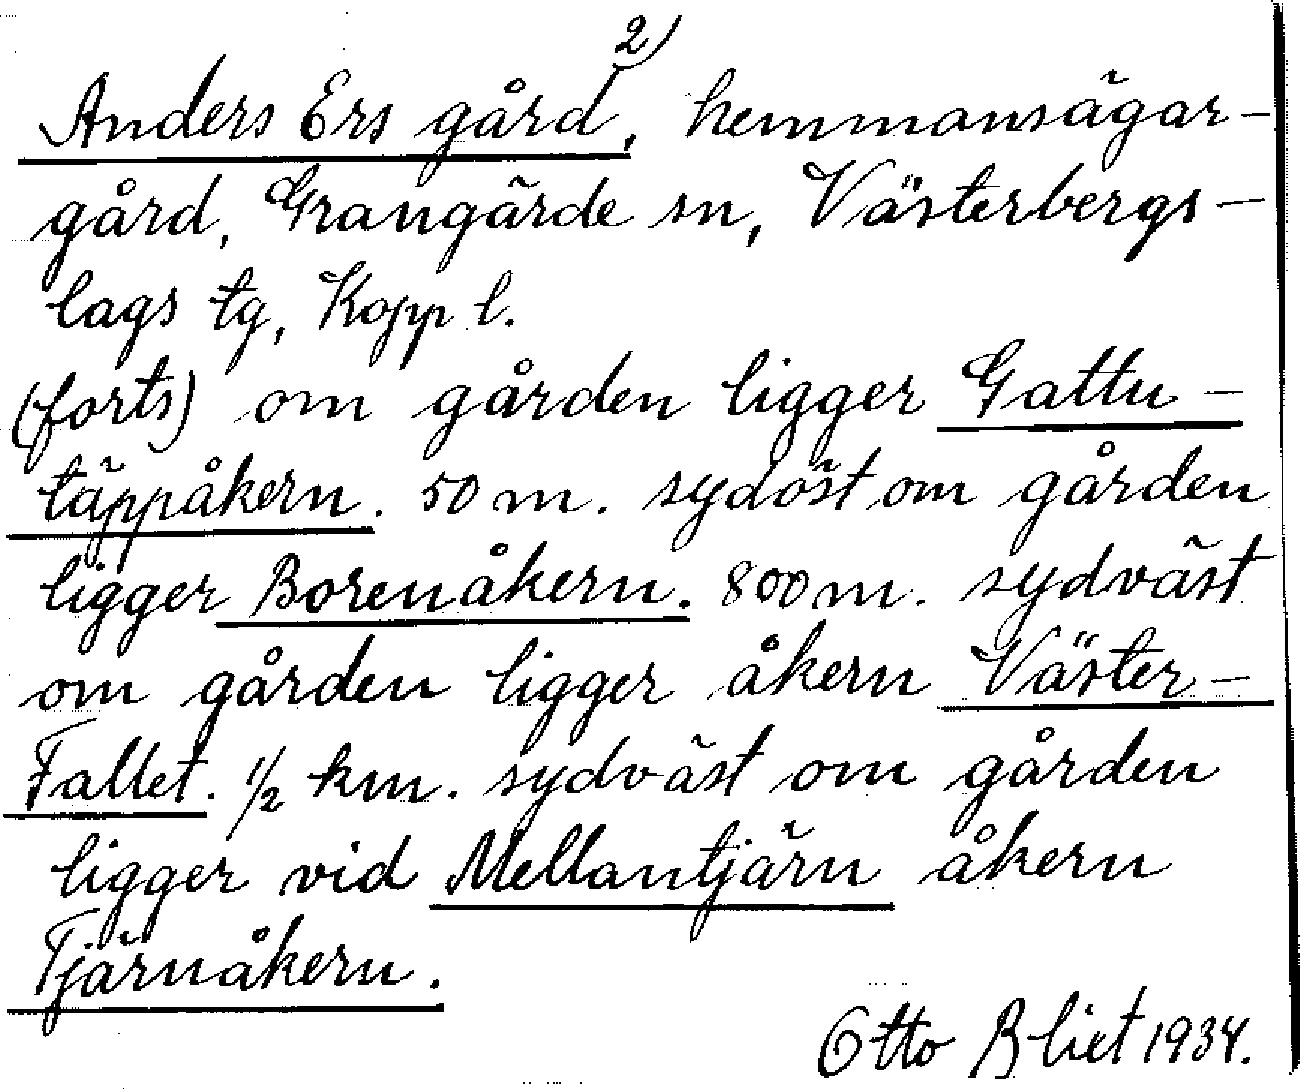 2)
Anders Ers gård, hemmansägar-
gård, Grangärde sn, Västerbergs-
lags tg, Kopp l.
(forts) om gården ligger Gattu-
täppåkern. 50 m. sydöst om gården
ligger Borenåkern. 800 m. sydväst
om gården ligger åkern Väster-
Fallet. 1/2 km. sydväst om gården
ligger vid Mellantjärn åkern
Tjärnåkern.
Otto Blixt 1934.